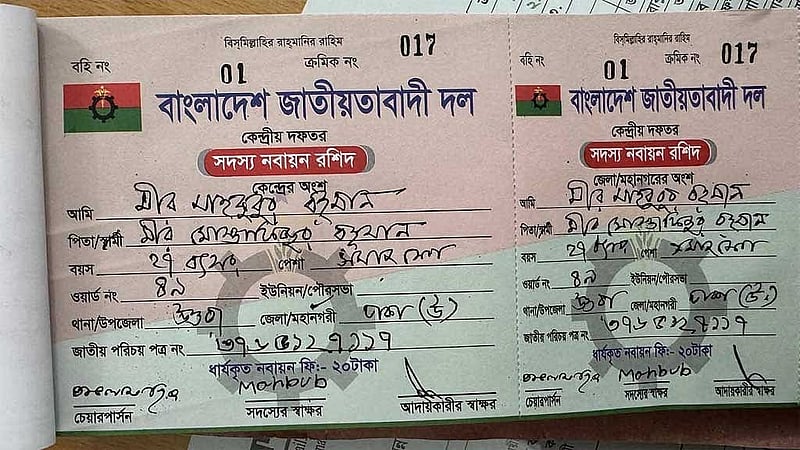 বিস্‌মিল্লাহির রাহ্‌মানির রাহিম
বহি নং 01 ক্রমিক নং 017
বাংলাদেশ জাতীয়তাবাদী দল
কেন্দ্রীয় দফতর
সদস্য নবায়ন রশিদ
কেন্দ্রের অংশ
আমি মীর মাহবুবুর রহমান
পিতা/স্বামী মীর মোস্তাফিজুর রহমান
বয়স পেশা
ওয়ার্ড নং ৪৯ ইউনিয়ন/পৌরসভা
থানা/উপজেলা উত্তরা জেলা/মহানগরী ঢাকা (উঃ)
জাতীয় পরিচয় পত্র নং
ধার্যকৃত নবায়ন ফি:- ২০টাকা
Mahbub
চেয়ারপার্সন সদস্যের স্বাক্ষর আদায়কারীর স্বাক্ষর
বিস্‌মিল্লাহির রাহ্‌মানির রাহিম
বহি নং 01 ক্রমিক নং 017
বাংলাদেশ জাতীয়তাবাদী দল
কেন্দ্রীয় দফতর
সদস্য নবায়ন রশিদ
জেলা/মহানগরের অংশ
আমি মীর মাহবুবুর রহমান
পিতা/স্বামী মীর মোস্তাফিজুর রহমান
বয়স পেশা
ওয়ার্ড নং ৪৯ ইউনিয়ন/পৌরসভা
থানা/উপজেলা উত্তরা জেলা/মহানগরী ঢাকা (উঃ)
জাতীয় পরিচয় পত্র নং
ধার্যকৃত নবায়ন ফি:- ২০টাকা
Mahbub
চেয়ারপার্সন সদস্যের স্বাক্ষর আদায়কারীর স্বাক্ষর